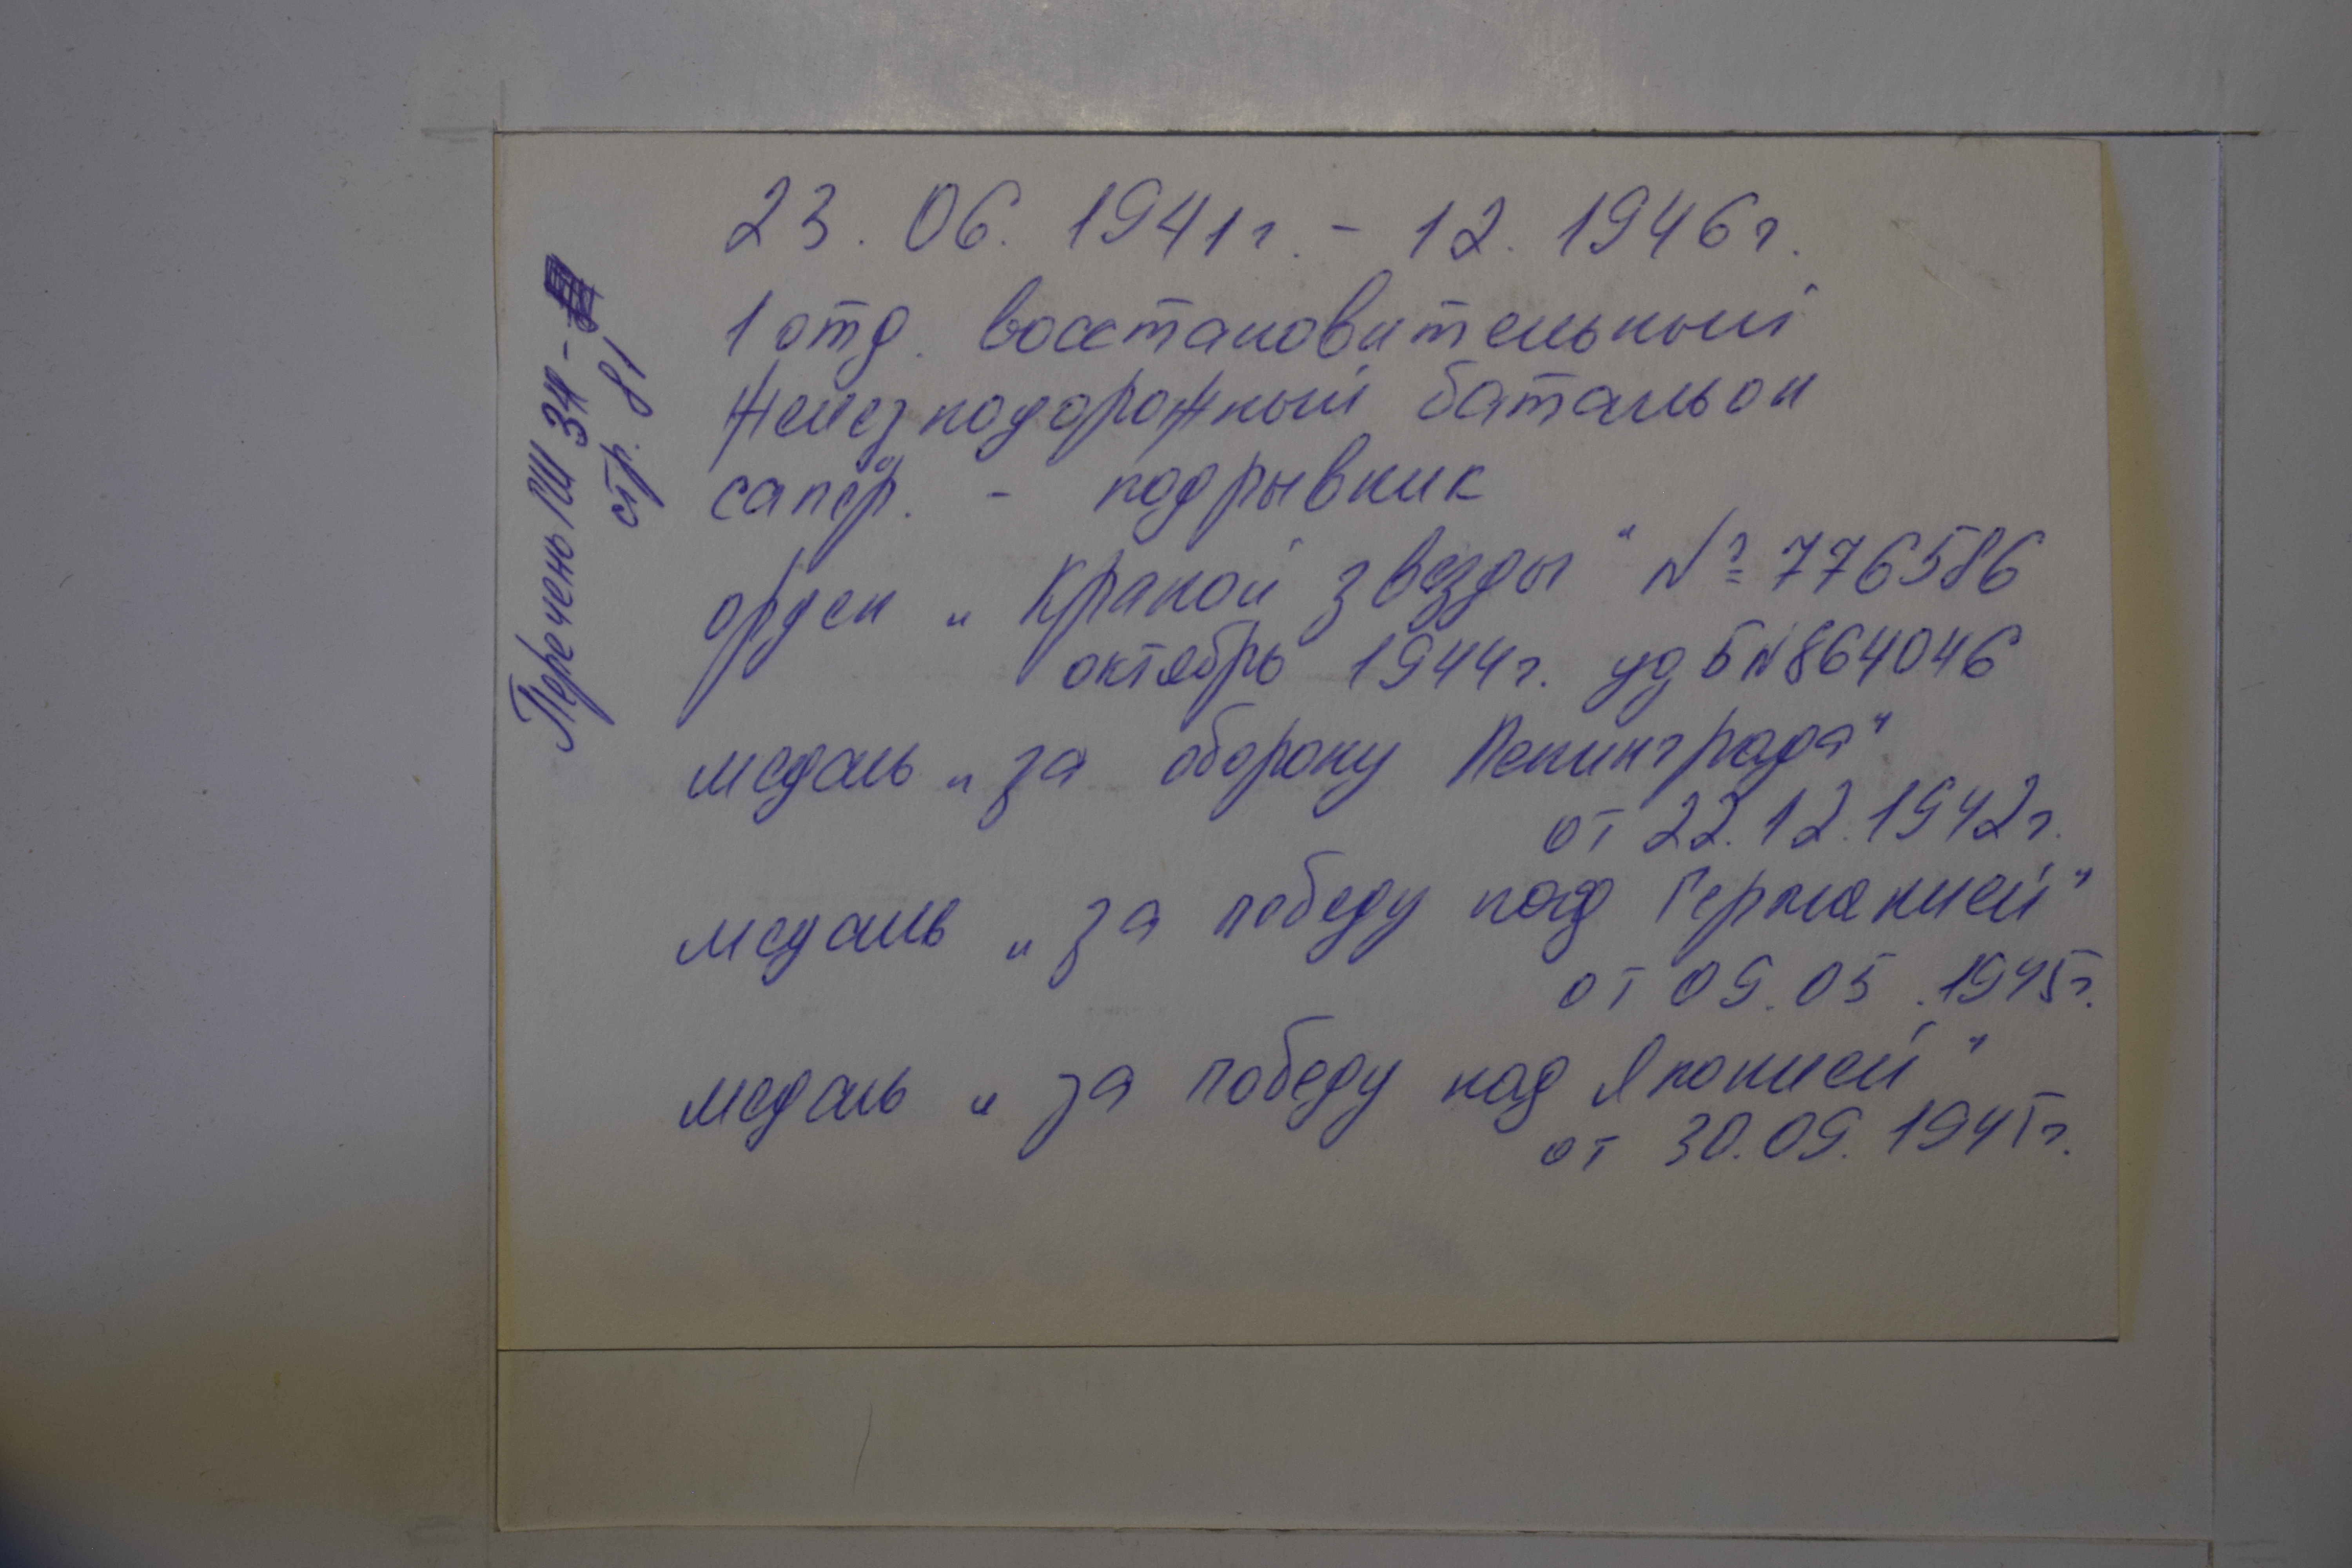 23. 06. 1941г. - 12. 1946г.
1 отд. восстановительный
железнодорожный батальон
сапёр. - подрывник
орден „Краной звезды" № 776586
октябрь 1944г. уд Б№864046
медаль „за оборону Ленинграда"
от 22.12.1942г.
медаль „за победу над Германией"
от 09.05.1945г.
медаль „за победу над Японией"
от 30.09.1945г.
Перечень ГШ 34 -
стр. 81